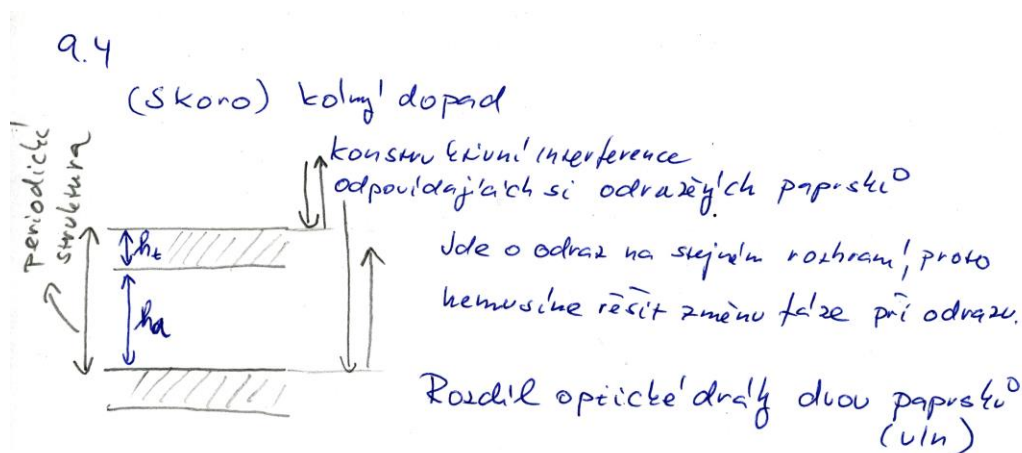 9.4
(Skoro) kolmý dopad
periodická
struktura
konstruktivní interference
odpovídajících si odražěých paprsků
h_t
h_a
Jde o odraz na stejném rozhraní, proto
nemusíme řěšit změnu fáze při odrazu.
Rozdíl optické dráhy dvou paprsků
(vln)